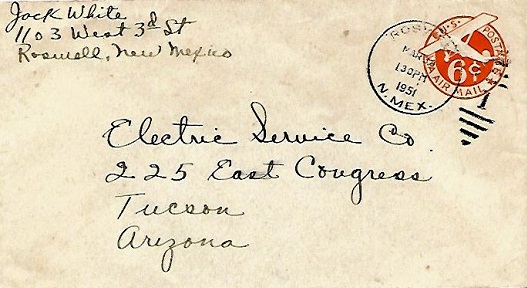 Jack White
1103 West 3rd St
Roswell, New Mexico
ROSW
MAR
130PM
1951
N. MEX.
U.S. POSTAGE
6¢
VIA AIR MAIL
1
Electric Service Co
225 East Congress
Tucson
Arizona